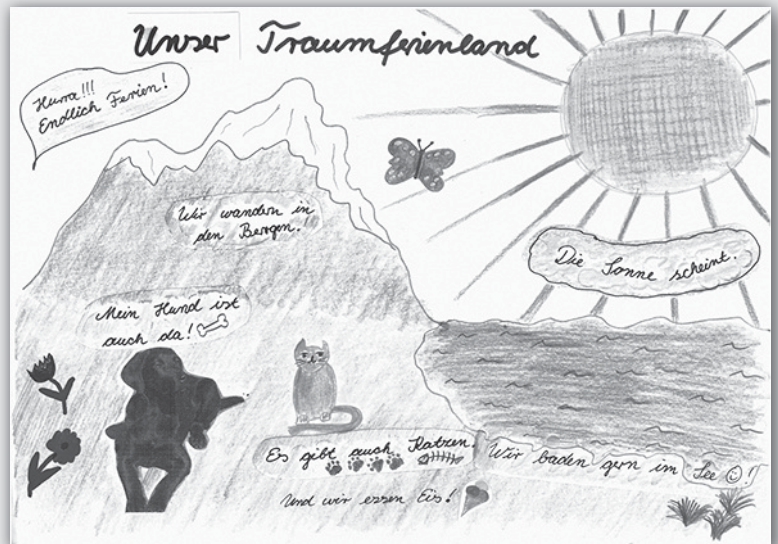 Unser Traumferienland
Hurra!!!
Endlich Ferien!
Wir wandern in
den Bergen!
Die Sonne scheint.
Mein Hund ist
auch da!
Es gibt auch Katzen.
Wir baden gern im See ☺!
Und wir essen Eis!